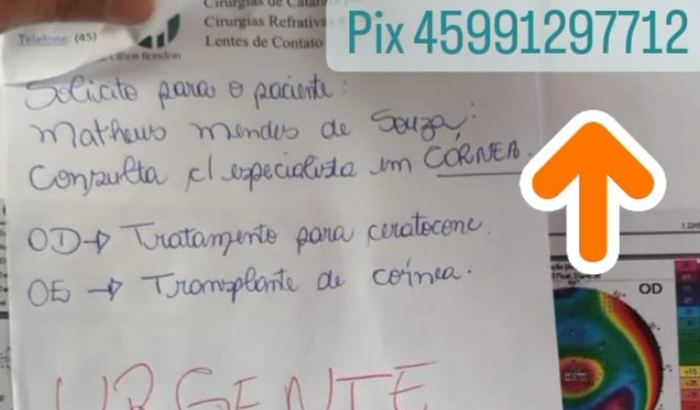 Cirurgias de Catarata
Cirurgias Refrativas
Lentes de Contato
Telefone: (45)
Pix 45991297712
Solicito para o paciente:
Matheus Mendes de Souza:
Consulta c/ especialista em CÓRNEA.
OD → Tratamento para ceratocone.
OE → Transplante de córnea.
URGENTE
OD